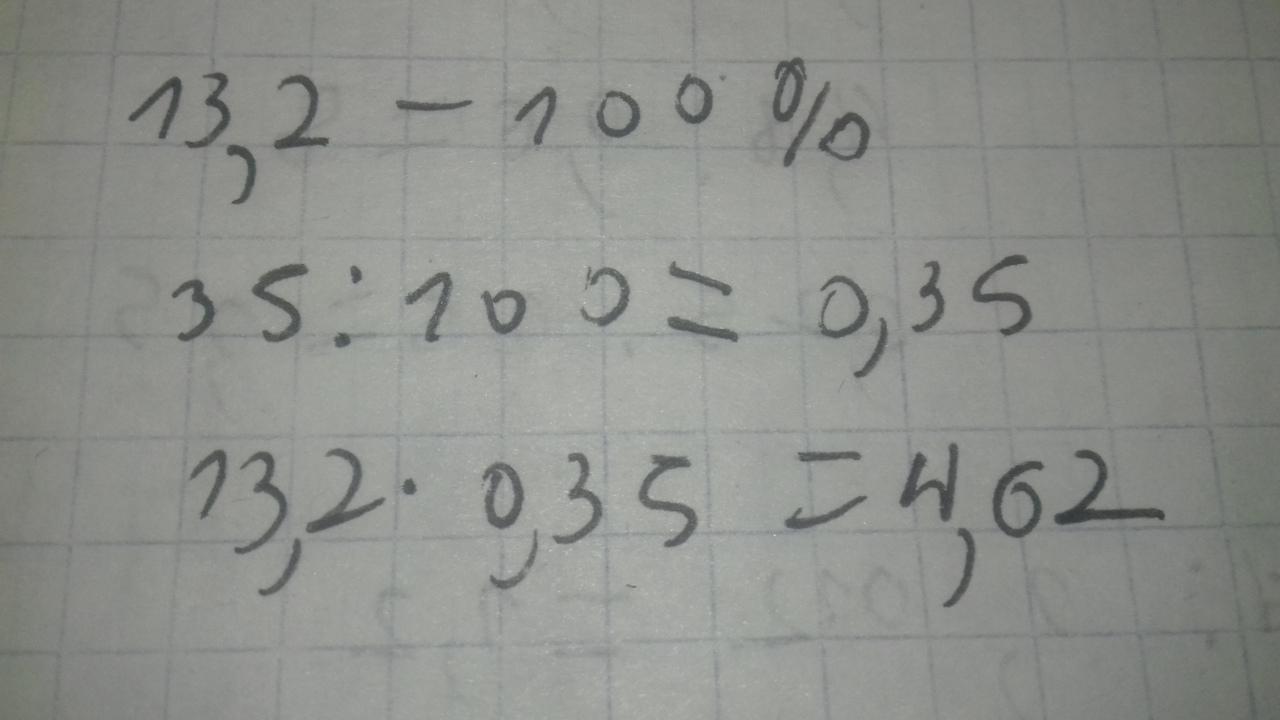 13,2 – 100 %
35 : 100 = 0,35
13,2 · 0,35 = 4,62